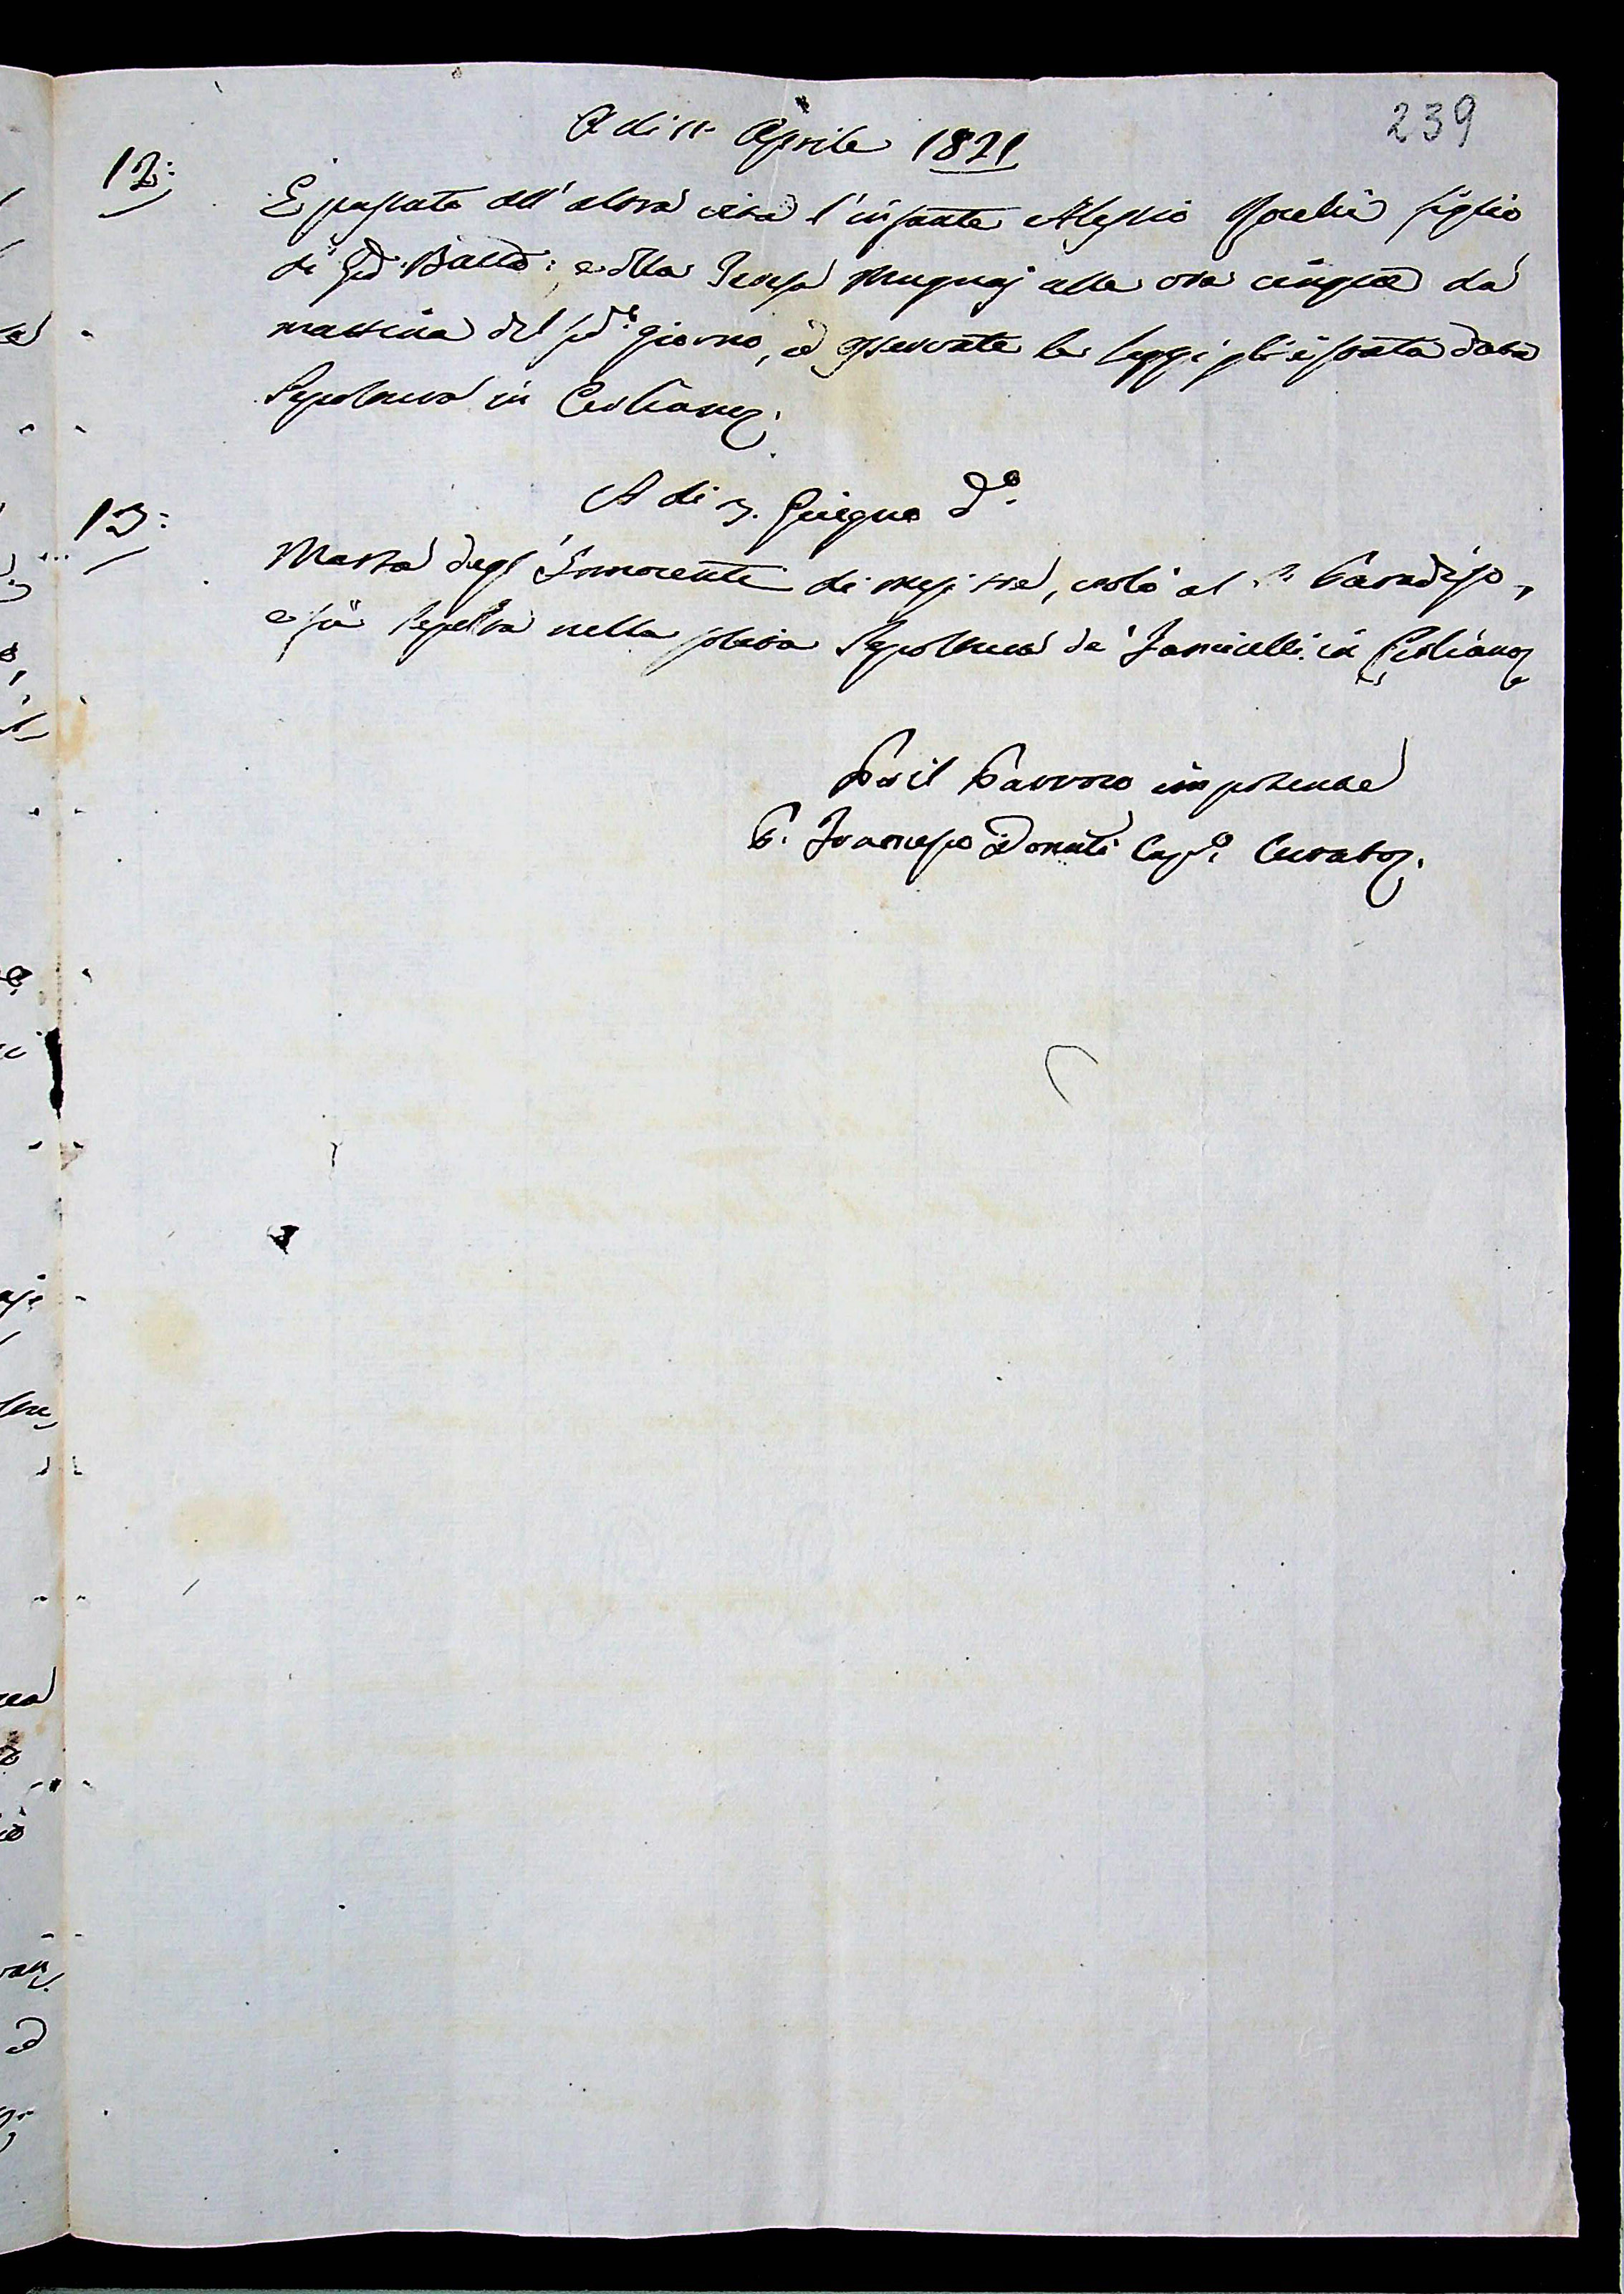 239
A di 11 Aprile 1821
12:
E passato all' altra vita l'infante Alessio figlio
di Gio Batta: e della Teresa Mugnaj alle ore cinque da
mattina del sud.o giorno, ed osservate le leggi gli è stata data
Sepoltura in Cestiano.
A di 3. Giugno d.o
13:
Marta degl' Innocenti di mesi tre, volò al Paradiso,
e fù sepolta nella solita Sepoltura de' in Cestiano
Per il Parroco impotente
P. Francesco Donati Capp.o Curato.